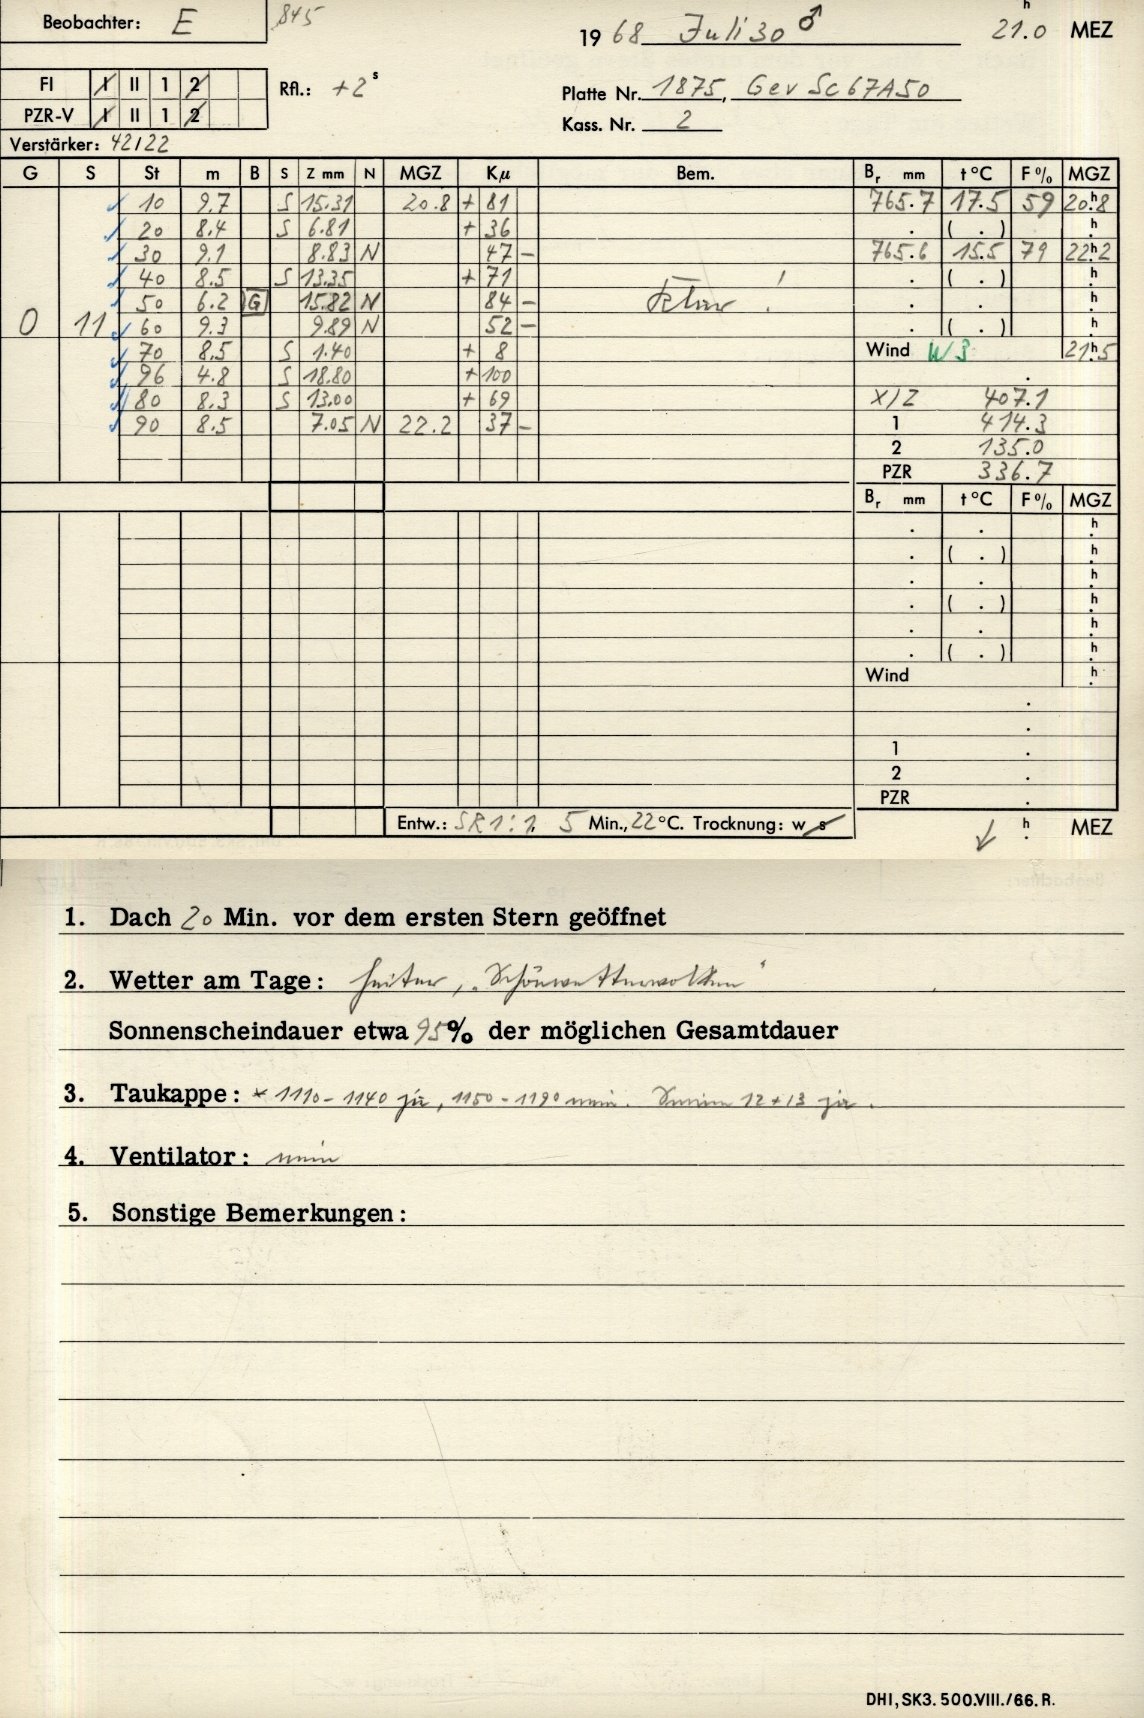 Beobachter: E 845
1968 Juli 30 ♂ 21.0 h MEZ
FI I II 1 2
Rfl.: +2 s
PZR-V I II 1 2
Platte Nr. 1875, Gev Sc67A50
Kass. Nr. 2
Verstärker: 42/22
G S St m B S Z mm N MGZ Kμ Bem. Br mm t °C F% MGZ
10 9.7 S 15.31 20.8 + 81 765.7 17.5 59 20h8
20 8.4 S 6.81 + 36 . ( . ) h.
30 9.1 8.83 N 47 – 765.6 15.5 79 22h2
40 8.5 S 13.35 + 71 . ( . ) h.
50 6.2 G 15.82 N 84 – klar! . . h.
0 11 60 9.3 9.89 N 52 – . ( . ) h.
70 8.5 S 1.40 + 8 Wind W3 21h5
96 4.8 S 18.80 + 100 .
80 8.3 S 13.00 + 69 X/Z 407.1
90 8.5 7.05 N 22.2 37 – 1 414.3
2 135.0
PZR 336.7
Br mm t °C F% MGZ
. . h.
. ( . ) h.
. . h.
. ( . ) h.
. . h.
. ( . ) h.
Wind h.
.
.
1 .
2 .
PZR .
Entw.: SR1:1, 5 Min., 22 °C. Trocknung: w s h. MEZ
1. Dach 20 Min. vor dem ersten Stern geöffnet
2. Wetter am Tage: heiter, „Schönwetterwolken"
Sonnenscheindauer etwa 95% der möglichen Gesamtdauer
3. Taukappe: * 1110–1140 ja, 1150–1190 nein. 12+13 ja.
4. Ventilator: nein
5. Sonstige Bemerkungen:
DHI, SK3. 500. VIII./66. R.